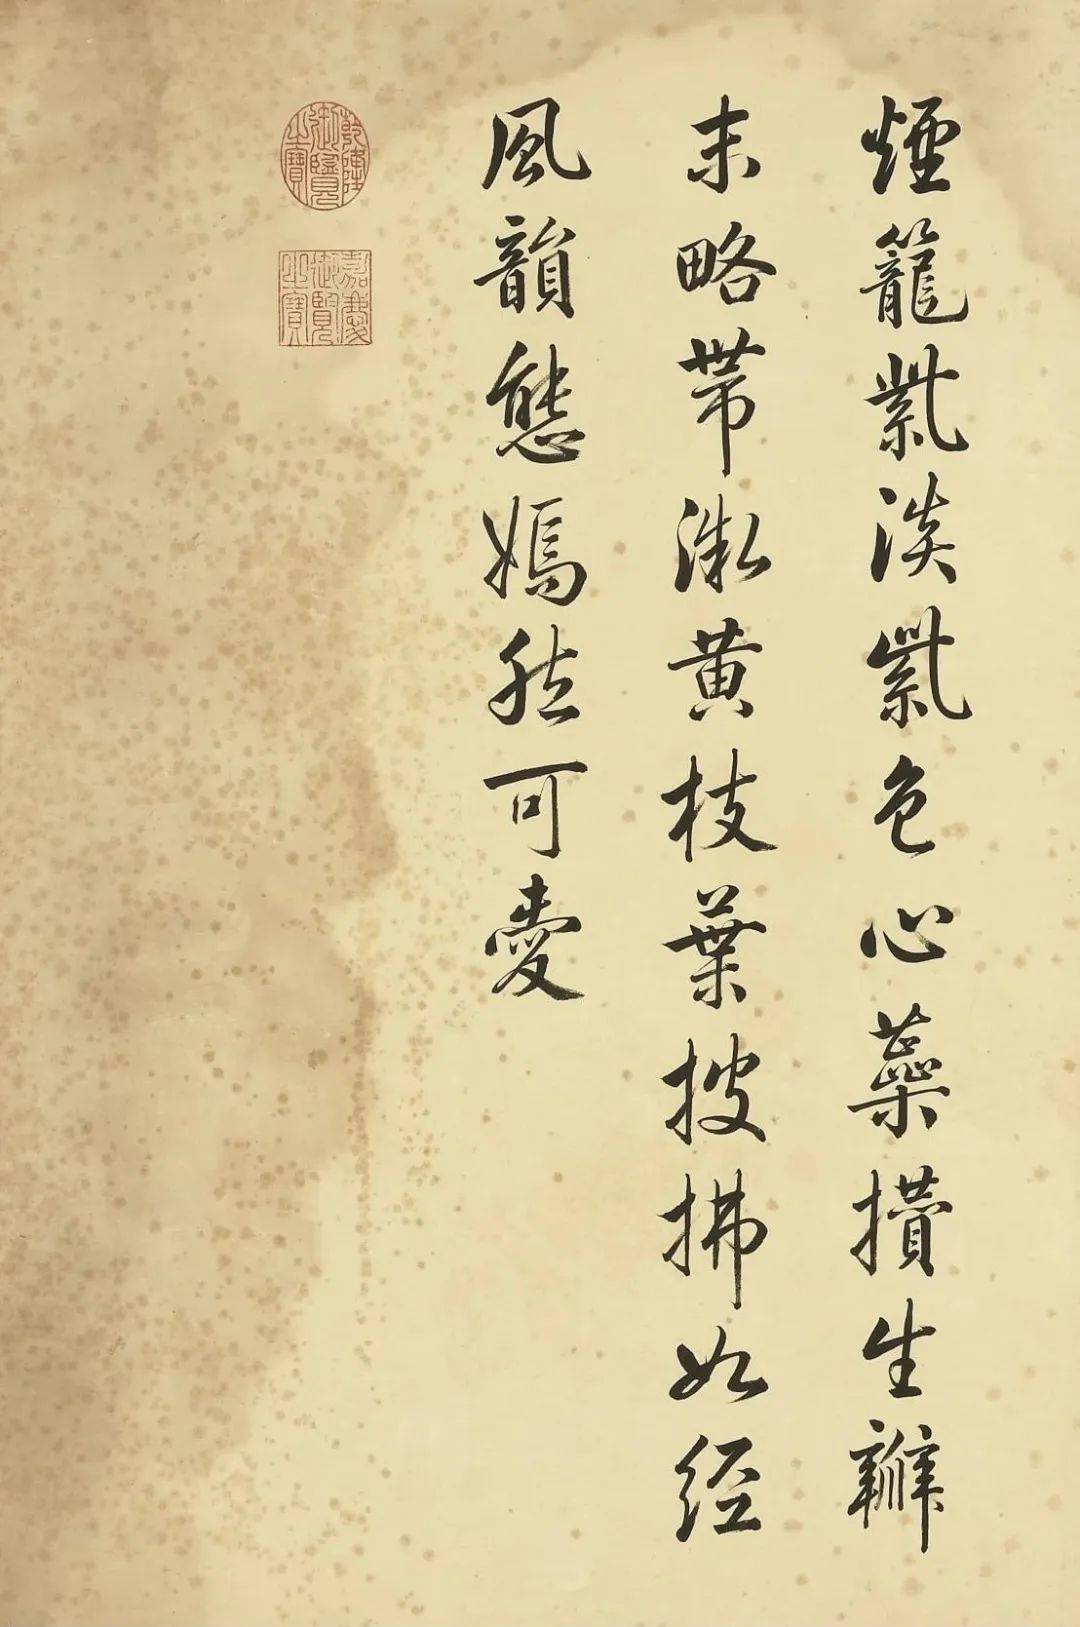 煙籠紫淡紫色心蘂攢生瓣
末略帶淺黃枝葉披拂如經
風韻態嫣然可愛
乾隆御覽之寶
嘉慶御覽之寶